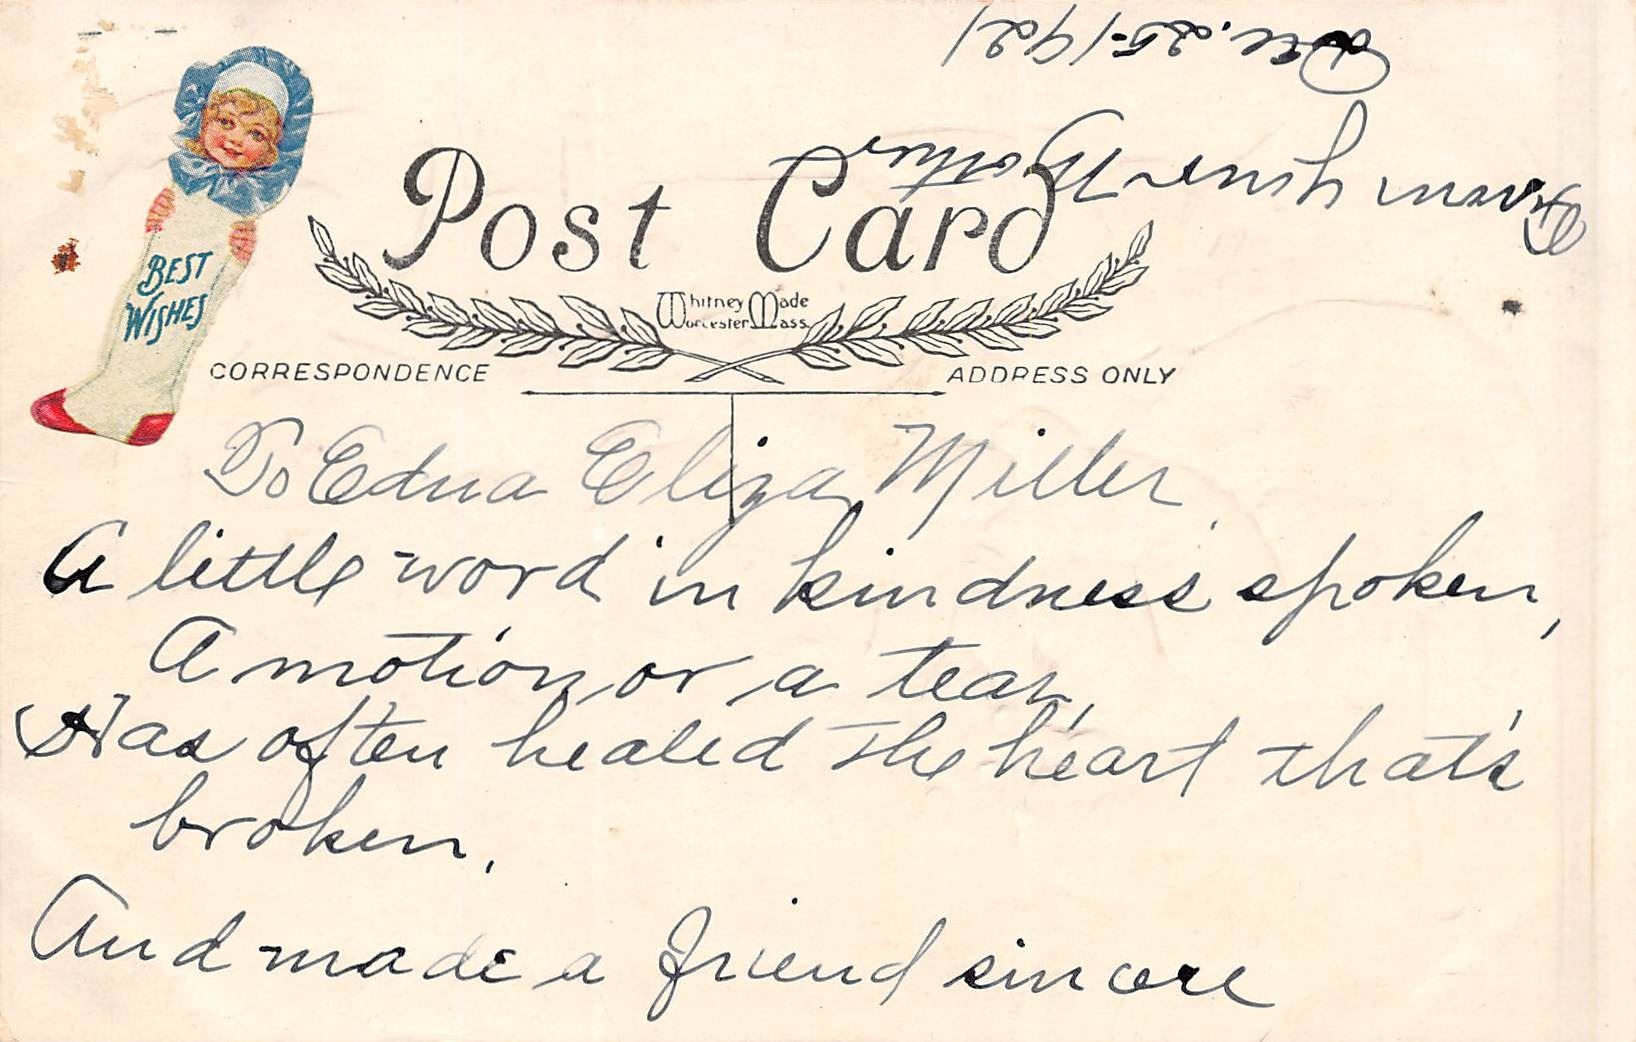 BEST
WISHES
Post Card
Whitney Made
Worcester Mass
CORRESPONDENCE
ADDRESS ONLY
To Edna Eliza Miller
A little word in kindness spoken,
A motion, or a tear,
Has often healed the heart that's
broken,
And made a friend sincere
From your Mother
Dec. 25-1921